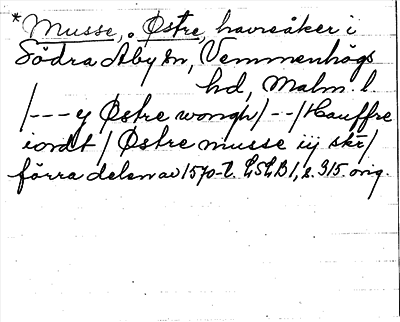 *Musse, Østre, havreåker i
Södra Åby sn, Vemmenhögs
hd, Malm. l
/---y Østre wongh/--/Hauffre
iordt/Østre musse iij skr/
förra delen av 1570-t. LSLB 1, s. 315. orig.